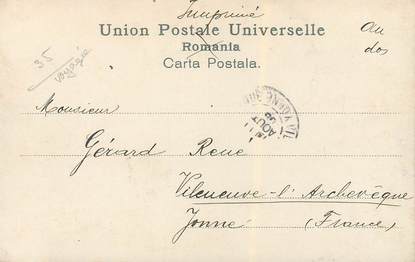 Imprimé
Union Postale Universelle
Romania
Carta Postala.
Au
dos
35
voyagé
Monsieur
AOUT
Gérard René
Villeneuve-l'Archevêque
Yonne (France)